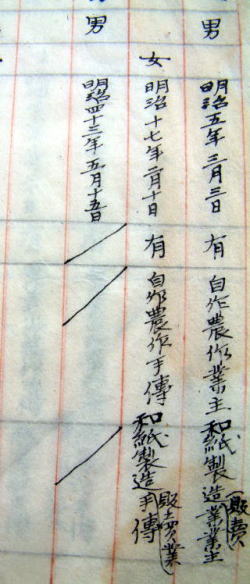 男 明治五年三月三日 有 自作農作業主 和紙製造業主 (販賣)
女 明治十七年二月十日 有 自作農作手傳 和紙製造手傳 (販賣業)
男 明治四十三年五月十五日